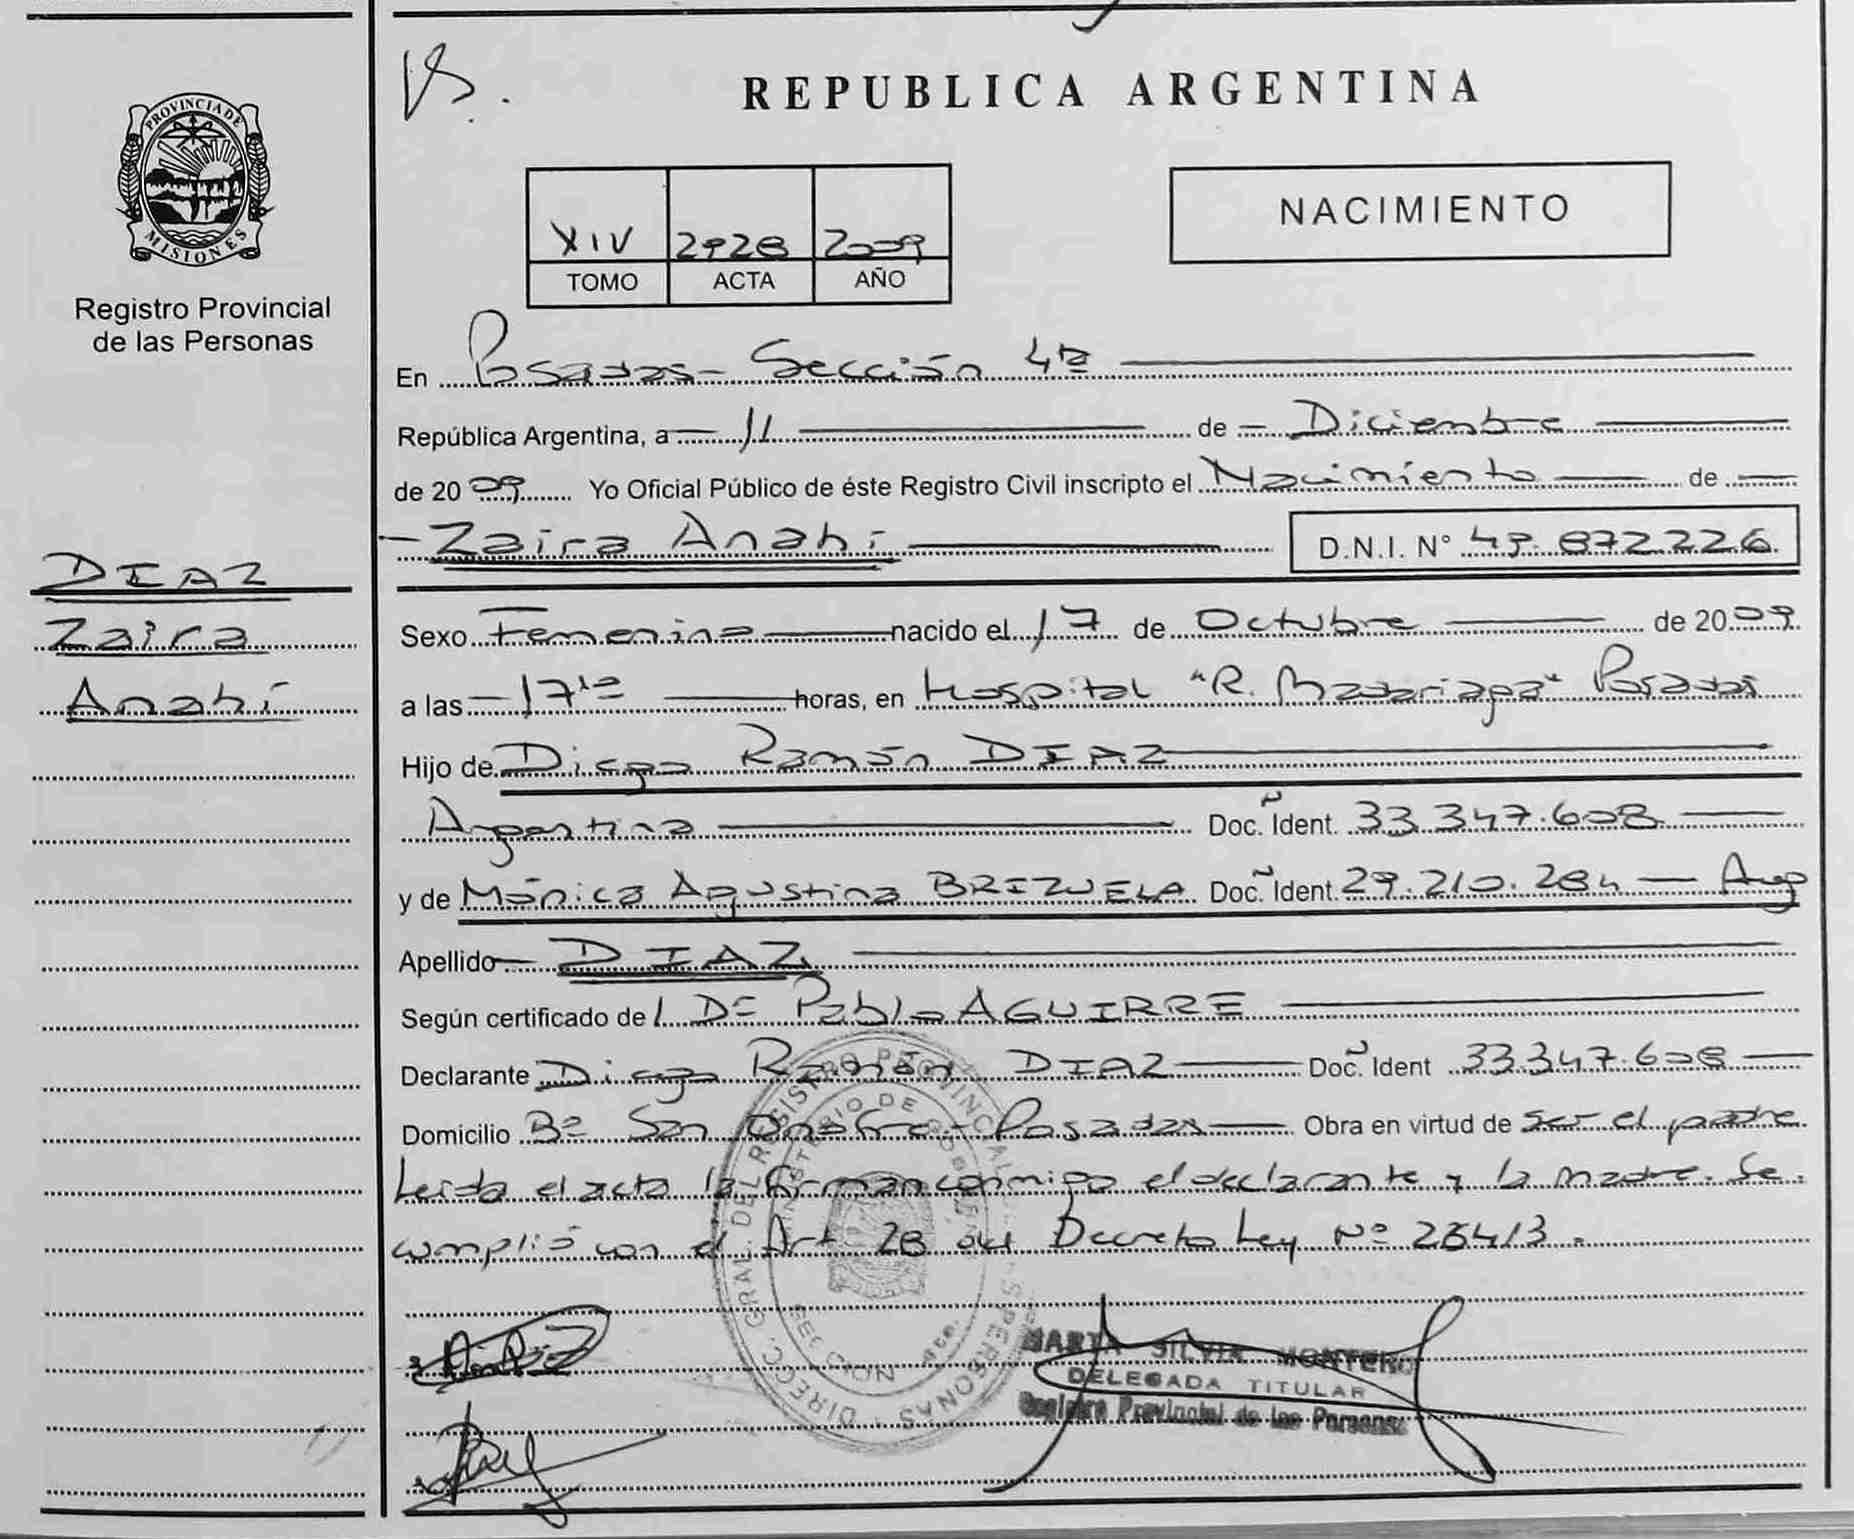 REPUBLICA ARGENTINA
PROVINCIA DE MISIONES
Registro Provincial
de las Personas
NACIMIENTO
XIV 2928 2009
TOMO ACTA AÑO
En Posadas - Sección 4ta
República Argentina, a 11 de Diciembre
de 2009 Yo Oficial Público de éste Registro Civil inscripto el Nacimiento de
Zaira Anahí D.N.I. N° 49.872.226
DIAZ
Zaira
Anahí
Sexo Femenino nacido el 17 de Octubre de 2009
a las 17 10 horas, en Hospital "R. Madariaga" Posadas
Hijo de Diego Ramón DIAZ
Argentino Doc. Ident. 33.347.608
y de Mónica Agustina BREZUELA Doc. Ident. 29.210.284 - Arg
Apellido DIAZ
Según certificado del Dr Pablo AGUIRRE
Declarante Diego Ramón DIAZ Doc. Ident 33.347.608
Domicilio Bº San Onofre - Posadas Obra en virtud de ser el padre
Leida el acta la firman conmigo el declarante y la madre. Se
cumplió con el Art 28 del Decreto Ley Nº 26413.
DIRECC. GRAL. DEL REGISTRO PROVINCIAL DE LAS PERSONAS
MINISTERIO DE GOBIERNO
SECCION 4ta.
MARTA SILVIA MONTERO
DELEGADA TITULAR
Registro Provincial de las Personas